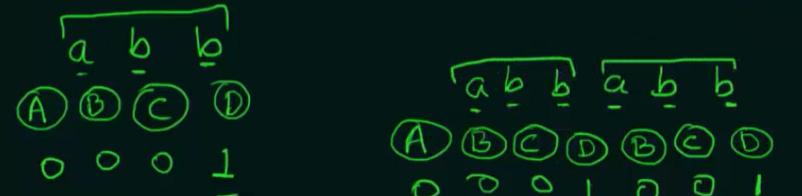 a b b
A B C D
0 0 0 1
a b b a b b
A B C D B C D
0 0 0 1 0 0 1